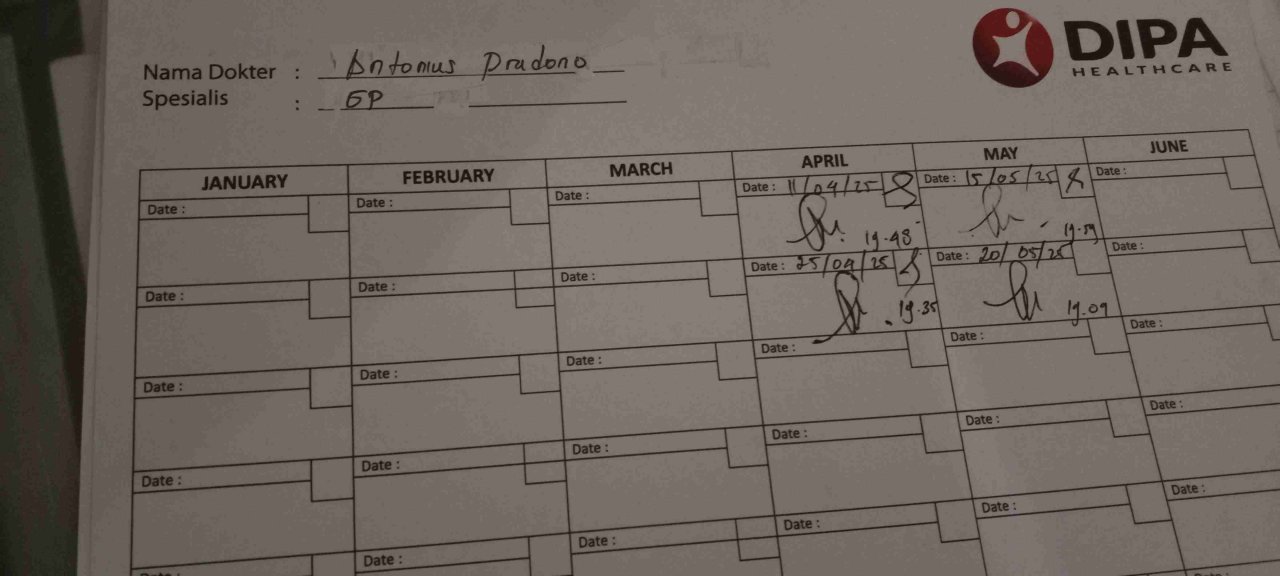 DIPA
HEALTHCARE
Nama Dokter : Antonius Pradono
Spesialis : GP
JANUARY FEBRUARY MARCH APRIL MAY JUNE
Date : Date : Date : Date : 11/04/25 Date : 15/05/25 Date :
19.48 19.59
Date : Date : Date : Date : 25/04/25 Date : 20/05/25 Date :
19.35 19.09
Date : Date : Date : Date : Date : Date :
Date : Date : Date : Date : Date : Date :
Date : Date : Date : Date : Date : Date :